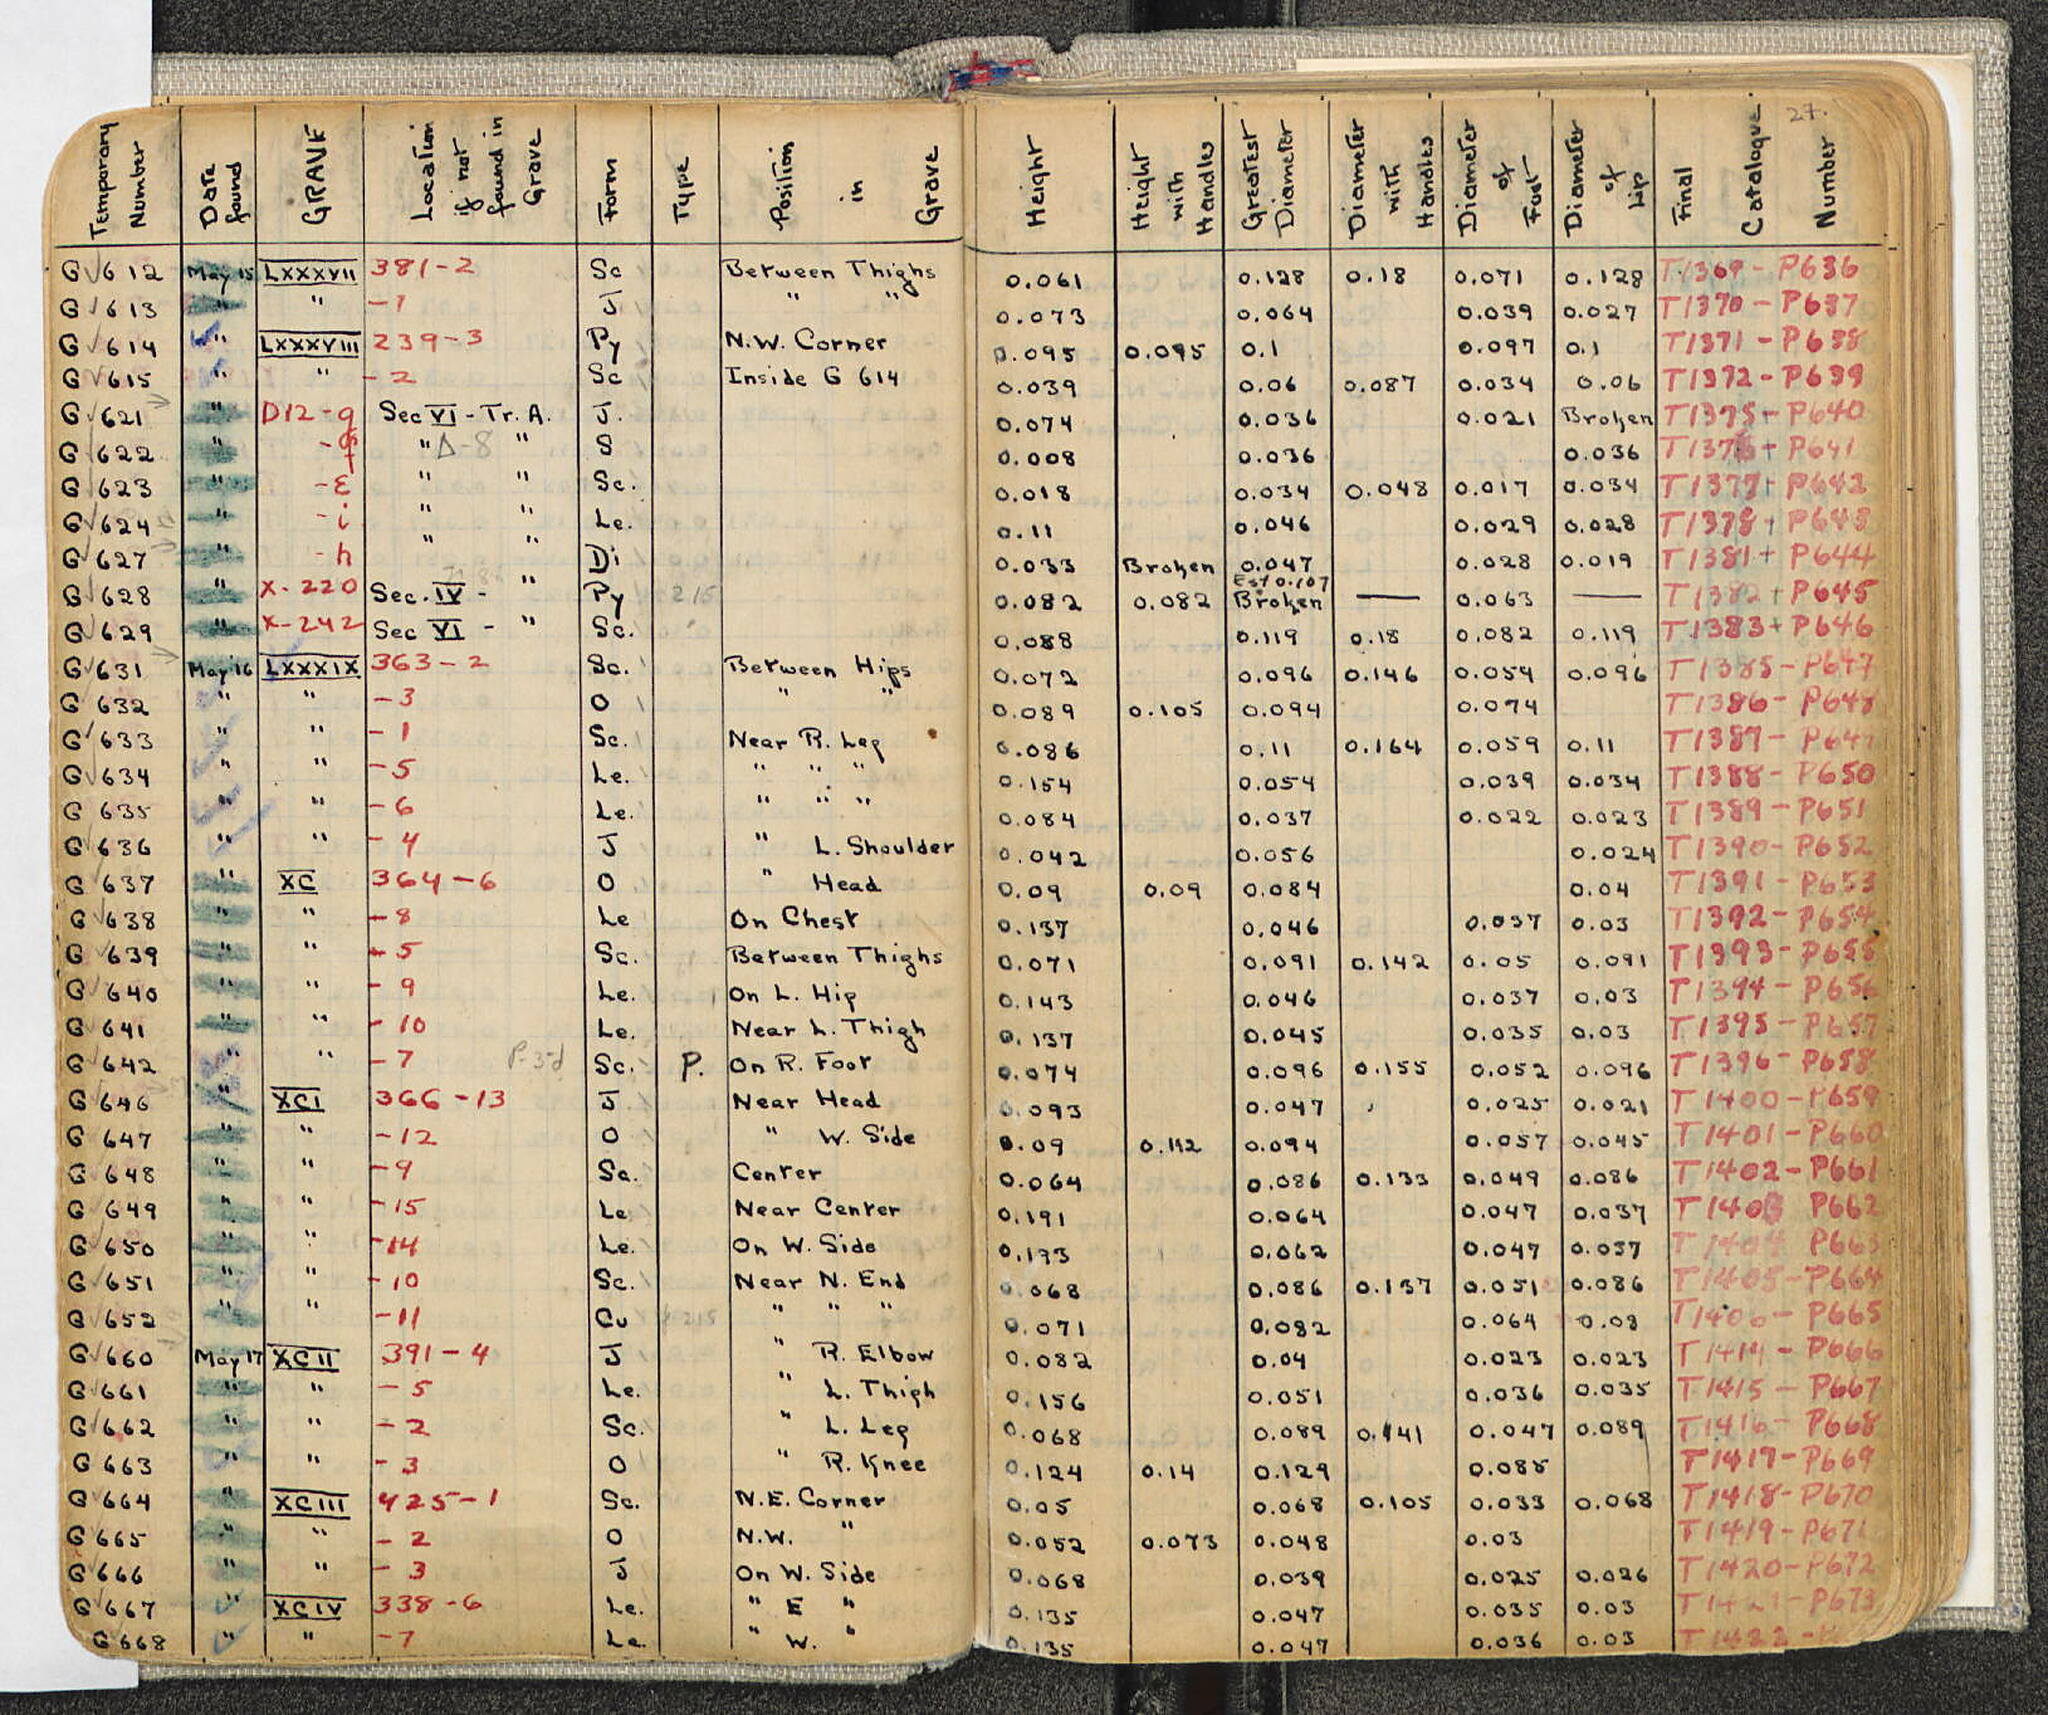 27.
Temporary Number | Date found | GRAVE | Location if not found in Grave | Form | Type | Position in Grave | Height | Height with Handles | Greatest Diameter | Diameter with Handles | Diameter of Foot | Diameter of Lip | Final Catalogue Number
G 612 May 15 LXXXVII 381-2 Sc Between Thighs 0.061 0.128 0.18 0.071 0.128 T1369-P636
G 613 " " -1 J " " 0.073 0.064 0.039 0.027 T1370-P637
G 614 " LXXXVIII 239-3 Py N.W. Corner 0.095 0.095 0.1 0.097 0.1 T1371-P638
G 615 " " -2 Sc Inside G 614 0.039 0.06 0.087 0.034 0.06 T1372-P639
G 621 " D12-g Sec VI - Tr. A. J. 0.074 0.036 0.021 Broken T1375+P640
G 622 " -f " Δ-8 " S 0.008 0.036 0.036 T1376+P641
G 623 " -ε " " Sc. 0.018 0.034 0.048 0.017 0.034 T1377+P642
G 624 " -i " " Le. 0.11 0.046 0.029 0.028 T1378+P643
G 627 " -h " " Di 0.033 Broken 0.047 0.028 0.019 T1381+P644
G 628 " X-220 Sec. IV - " Py 215 0.082 0.082 Est 0.107 Broken — 0.063 — T1382+P645
G 629 " X-242 Sec VI - " Sc. 0.088 0.119 0.18 0.082 0.119 T1383+P646
G 631 May 16 LXXXIX 363-2 Sc. Between Hips 0.072 0.096 0.146 0.054 0.096 T1385-P647
G 632 " " -3 O " " 0.089 0.105 0.094 0.074 T1386-P648
G 633 " " -1 Sc. Near R. Leg 0.086 0.11 0.164 0.059 0.11 T1387-P649
G 634 " " -5 Le. " " " 0.154 0.054 0.039 0.034 T1388-P650
G 635 " " -6 Le. " " " 0.084 0.037 0.022 0.023 T1389-P651
G 636 " " -4 J " L. Shoulder 0.042 0.056 0.024 T1390-P652
G 637 " XC 364-6 O " Head 0.09 0.09 0.084 0.04 T1391-P653
G 638 " " -8 Le On Chest 0.137 0.046 0.037 0.03 T1392-P654
G 639 " " -5 Sc. Between Thighs 0.071 0.091 0.142 0.05 0.091 T1393-P655
G 640 " " -9 Le. On L. Hip 0.143 0.046 0.037 0.03 T1394-P656
G 641 " " -10 Le. Near L. Thigh 0.137 0.045 0.035 0.03 T1395-P657
G 642 " " -7 P-3-d Sc. P. On R. Foot 0.074 0.096 0.155 0.052 0.096 T1396-P658
G 646 " XCI 366-13 J Near Head 0.093 0.047 0.025 0.021 T1400-P659
G 647 " " -12 O " W. Side 0.09 0.112 0.094 0.057 0.045 T1401-P660
G 648 " " -9 Sc. Center 0.064 0.086 0.133 0.049 0.086 T1402-P661
G 649 " " -15 Le Near Center 0.191 0.064 0.047 0.037 T1403 P662
G 650 " " -14 Le. On W. Side 0.193 0.062 0.047 0.037 T1404 P663
G 651 " " -10 Sc. Near N. End 0.068 0.086 0.137 0.051 0.086 T1405-P664
G 652 " " -11 Cu 215 " " " 0.071 0.082 0.064 0.08 T1406-P665
G 660 May 17 XCII 391-4 J " R. Elbow 0.082 0.04 0.023 0.023 T1414-P666
G 661 " " -5 Le. " L. Thigh 0.156 0.051 0.036 0.035 T1415-P667
G 662 " " -2 Sc. " L. Leg 0.068 0.089 0.141 0.047 0.089 T1416-P668
G 663 " " -3 O " R. Knee 0.124 0.14 0.129 0.085 T1417-P669
G 664 " XCIII 425-1 Sc. N.E. Corner 0.05 0.068 0.105 0.033 0.068 T1418-P670
G 665 " " -2 O N.W. " 0.052 0.073 0.048 0.03 T1419-P671
G 666 " " -3 J On W. Side 0.068 0.039 0.025 0.026 T1420-P672
G 667 " XCIV 338-6 Le. " E " 0.135 0.047 0.035 0.03 T1421-P673
G 668 " " -7 Le. " W. " 0.135 0.047 0.036 0.03 T1422